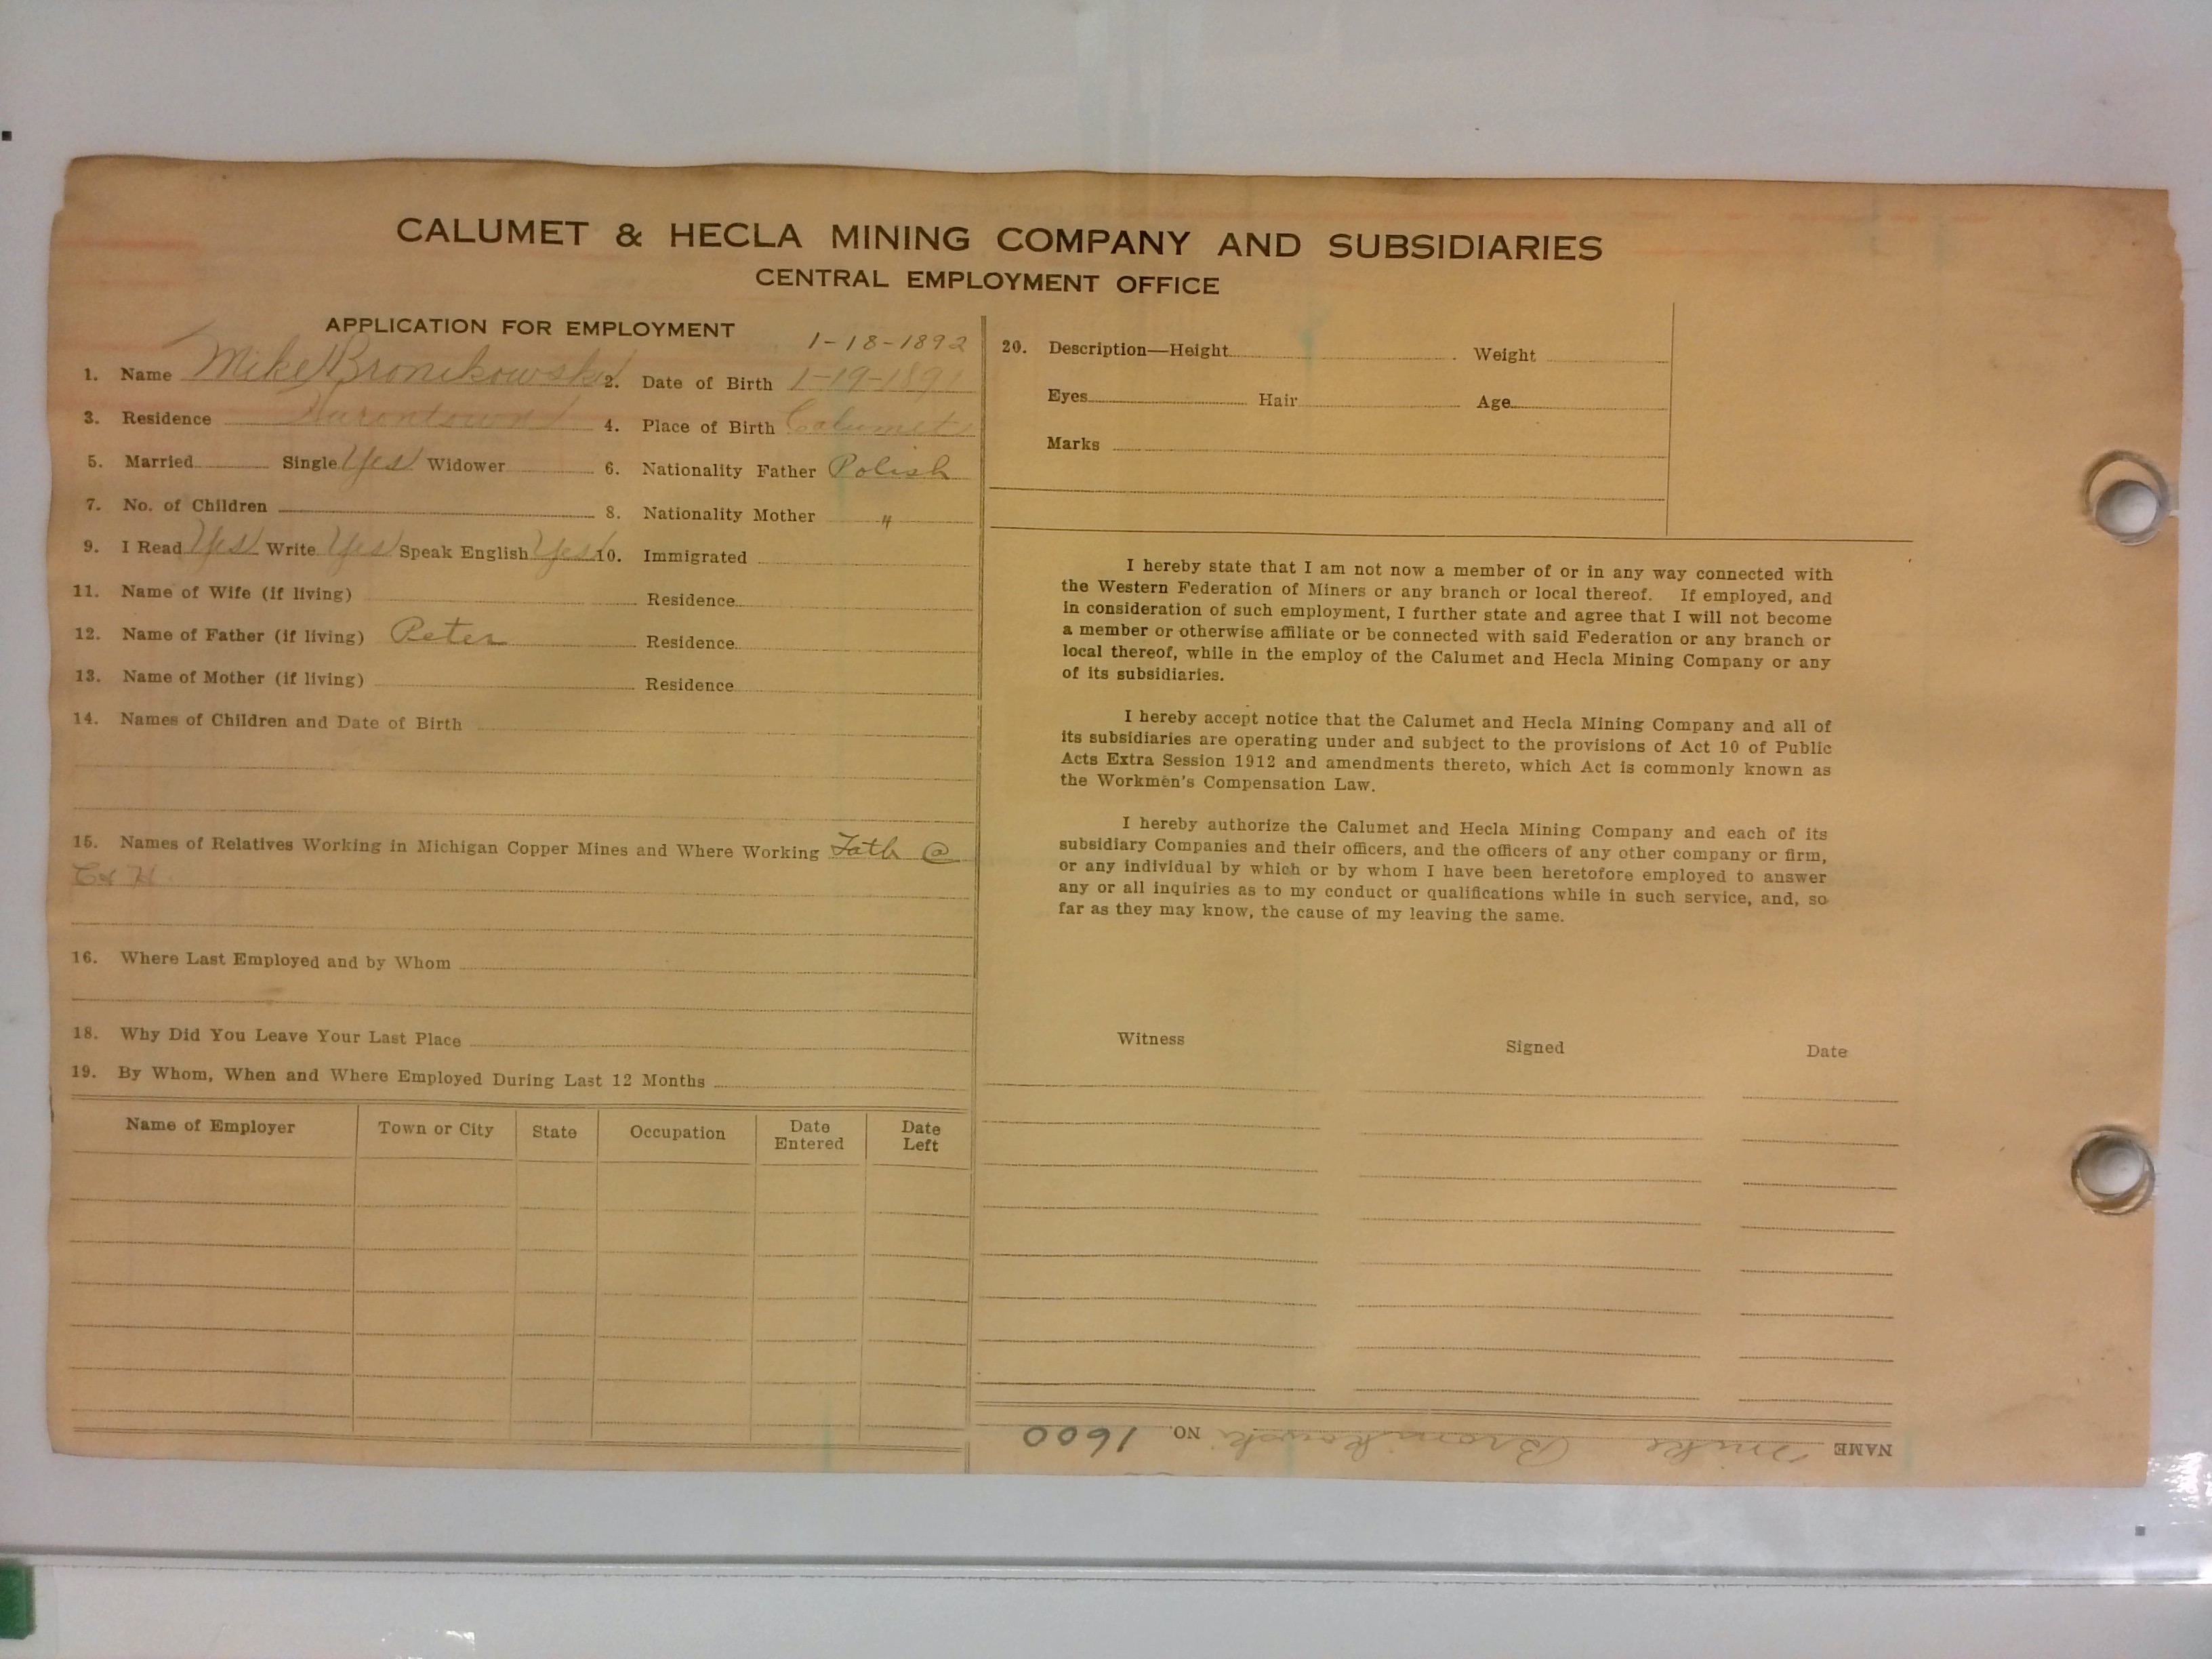 CALUMET & HECLA MINING COMPANY AND SUBSIDIARIES
CENTRAL EMPLOYMENT OFFICE
APPLICATION FOR EMPLOYMENT
1-18-1892
1. Name Mike Bronikowski 2. Date of Birth 1-19-1891
3. Residence Hurontown 4. Place of Birth Calumet
5. Married Single Yes Widower 6. Nationality Father Polish
7. No. of Children 8. Nationality Mother "
9. I Read Yes Write Yes Speak English Yes 10. Immigrated
11. Name of Wife (if living) Residence
12. Name of Father (if living) Peter Residence
13. Name of Mother (if living) Residence
14. Names of Children and Date of Birth
15. Names of Relatives Working in Michigan Copper Mines and Where Working Fath @
C & H.
16. Where Last Employed and by Whom
18. Why Did You Leave Your Last Place
19. By Whom, When and Where Employed During Last 12 Months
Name of Employer Town or City State Occupation Date Entered Date Left
20. Description—Height Weight
Eyes Hair Age
Marks
I hereby state that I am not now a member of or in any way connected with
the Western Federation of Miners or any branch or local thereof. If employed, and
in consideration of such employment, I further state and agree that I will not become
a member or otherwise affiliate or be connected with said Federation or any branch or
local thereof, while in the employ of the Calumet and Hecla Mining Company or any
of its subsidiaries.
I hereby accept notice that the Calumet and Hecla Mining Company and all of
its subsidiaries are operating under and subject to the provisions of Act 10 of Public
Acts Extra Session 1912 and amendments thereto, which Act is commonly known as
the Workmen's Compensation Law.
I hereby authorize the Calumet and Hecla Mining Company and each of its
subsidiary Companies and their officers, and the officers of any other company or firm,
or any individual by which or by whom I have been heretofore employed to answer
any or all inquiries as to my conduct or qualifications while in such service, and, so
far as they may know, the cause of my leaving the same.
Witness Signed Date
NAME Mike Bronikowski NO. 1600